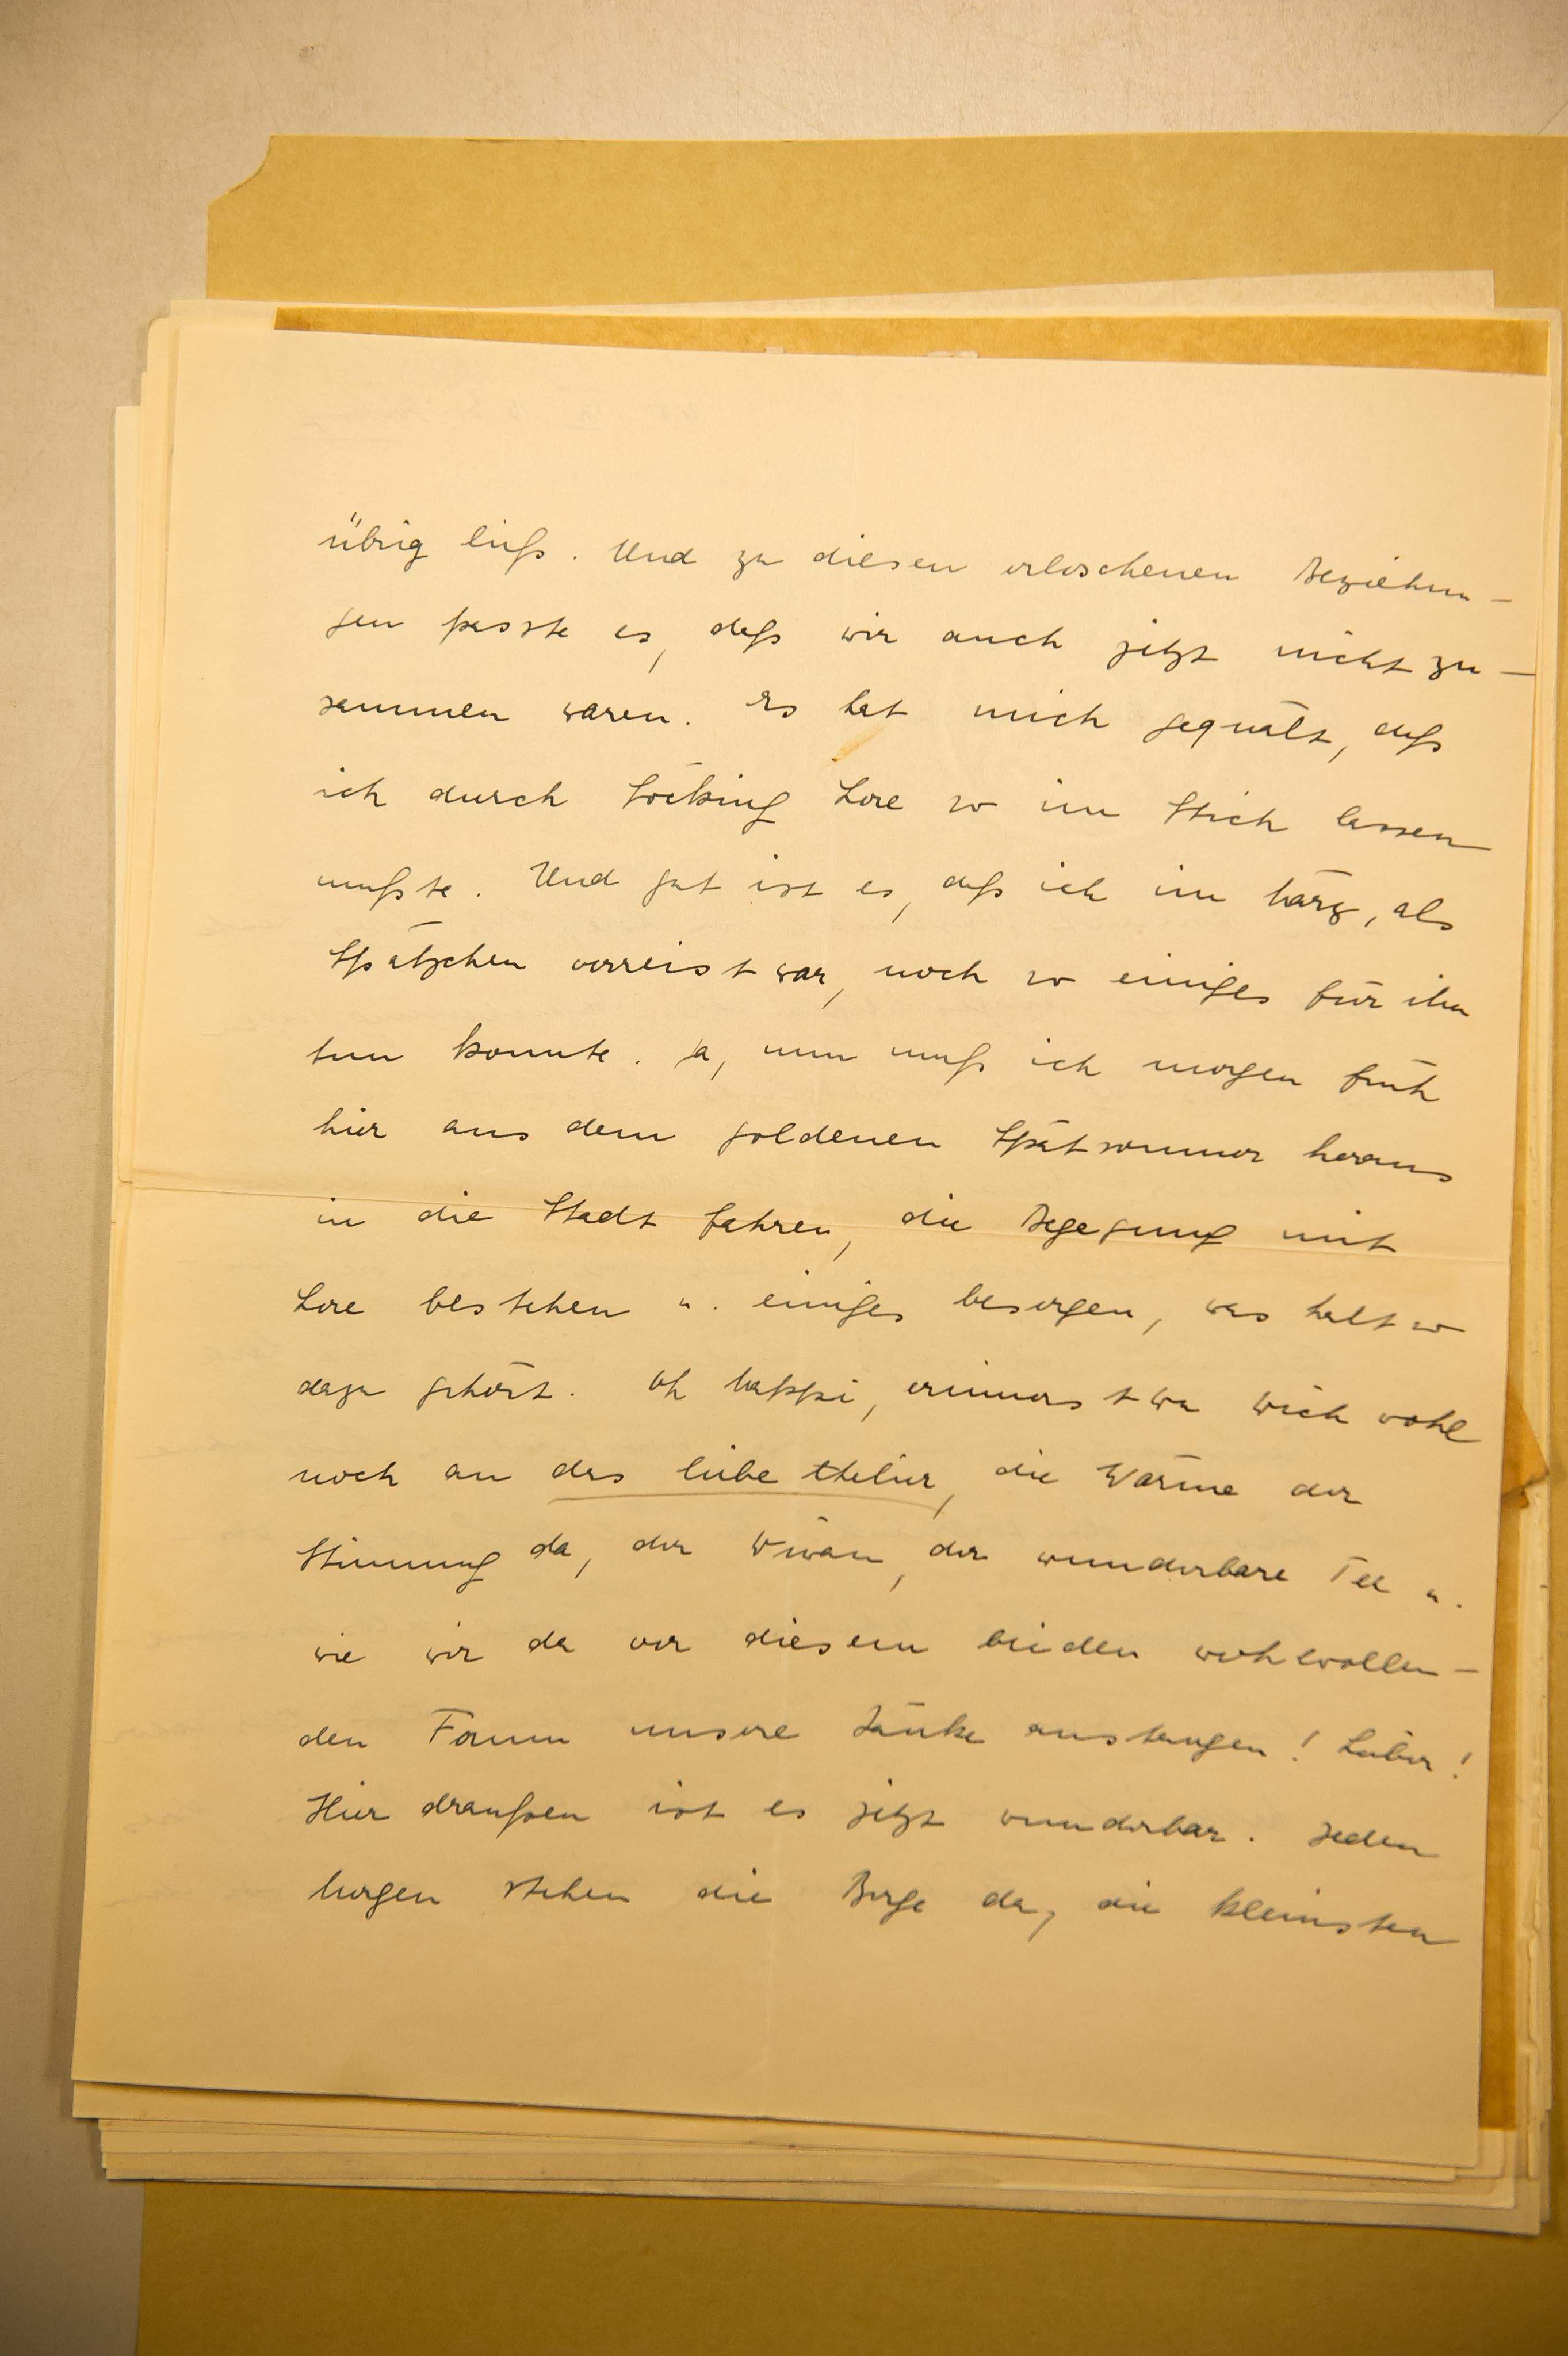 übrig liess. Und zu diesen erloschenen Beziehun-
gen passte es, dass wir auch jetzt nicht zu-
sammen waren. Es hat mich gequält, dass
ich durch Söcking Lore so im Stich lassen
musste. Und gut ist es, dass ich im März, als
Spätzchen verreist war, noch so einiges für ihn
tun konnte. Ja, nun muss ich morgen früh
hier aus dem goldenen Spätsommer heraus
in die Stadt fahren, die Begegnung mit
Lore bestehen u. einiges besorgen, was halt so
dazu gehört. Oh Mappi, erinnerst Du Dich wohl
noch an das liebe Atelier, die Wärme der
Stimmung da, der Diwan, der wunderbare Tee u.
wie wir da vor diesem beiden wohlwollen-
den Forum unsere Zänke austrugen! Lieber!
Hier draussen ist es jetzt wunderbar. Jeden
Morgen stehen die Berge da, die kleinsten